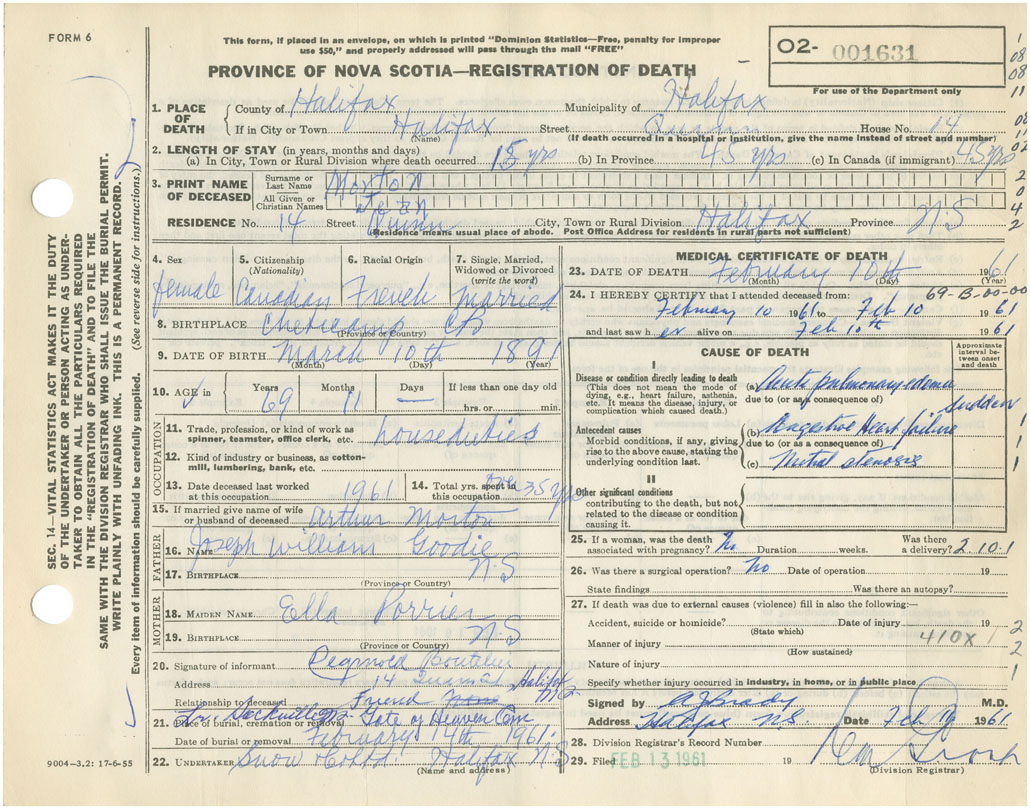 FORM 6
This form, if placed in an envelope, on which is printed "Dominion Statistics—Free, penalty for improper
use $50," and properly addressed will pass through the mail "FREE"
O2- 001631
For use of the Department only
PROVINCE OF NOVA SCOTIA—REGISTRATION OF DEATH
1. PLACE OF DEATH County of Halifax Municipality of Halifax
If in City or Town Halifax Street Quinn House No. 14
(Name) (If death occurred in a hospital or institution, give the name instead of street and number)
2. LENGTH OF STAY (in years, months and days)
(a) In City, Town or Rural Division where death occurred 15 yrs (b) In Province 45 yrs (c) In Canada (if immigrant) 45 yrs
3. PRINT NAME OF DECEASED Surname or Last Name Morton
All Given or Christian Names Jean
RESIDENCE No. 14 Street Quinn City, Town or Rural Division Halifax Province N.S
Residence means usual place of abode. Post Office Address for residents in rural parts not sufficient)
4. Sex 5. Citizenship (Nationality) 6. Racial Origin 7. Single, Married, Widowed or Divorced (write the word)
female Canadian French Married
8. BIRTHPLACE Cheticamp CB
(Province or Country)
9. DATE OF BIRTH March 10th 1891
(Month) (Day) (Year)
10. AGE in Years 69 Months 11 Days — If less than one day old
hrs. or min.
OCCUPATION
11. Trade, profession, or kind of work as spinner, teamster, office clerk, etc. houseduties
12. Kind of industry or business, as cotton-mill, lumbering, bank, etc.
13. Date deceased last worked at this occupation 1961 14. Total yrs. spent in this occupation over 35 yrs
15. If married give name of wife or husband of deceased Arthur Morton
FATHER
16. NAME Joseph William Goodie
17. BIRTHPLACE N.S
(Province or Country)
MOTHER
18. MAIDEN NAME Ella Porrier
19. BIRTHPLACE N.S
(Province or Country)
20. Signature of informant
Address 14 Halifax
Relationship to deceased Friend N.S
21. Place of burial, cremation or removal Gate of Heaven Cem
Date of burial or removal February 14th 1961
22. UNDERTAKER Snow Halifax N S
(Name and address)
9004—3.2: 17-6-55
MEDICAL CERTIFICATE OF DEATH
23. DATE OF DEATH February 10th 1961
(Month) (Day) (Year)
69-B-00-00
24. I HEREBY CERTIFY that I attended deceased from:
February 10 1961 to Feb 10 1961
and last saw h er alive on Feb 10th 1961
CAUSE OF DEATH
Approximate interval between onset and death
I
Disease or condition directly leading to death
This does not mean the mode of dying, e.g., heart failure, asthenia, etc. It means the disease, injury, or complication which caused death.)
(a) Acute pulmonary edema
due to (or as a consequence of) sudden
Antecedent causes
Morbid conditions, if any, giving rise to the above cause, stating the underlying condition last.
(b) Congestive Heart failure
due to (or as a consequence of)
(c) Mitral stenosis
II
Other significant conditions
contributing to the death, but not related to the disease or condition causing it.
25. If a woman, was the death associated with pregnancy? No Duration weeks. Was there a delivery? 2.10.1
26. Was there a surgical operation? No Date of operation 19
State findings Was there an autopsy?
27. If death was due to external causes (violence) fill in also the following:—
Accident, suicide or homicide? Date of injury 19
(State which)
Manner of injury 410X
(How sustained)
Nature of injury
Specify whether injury occurred in industry, in home, or in public place
Signed by A J Brady M.D.
Address Halifax N.S. Date Feb 1961
28. Division Registrar's Record Number
29. Filed FEB 13 1961 19
(Division Registrar)
SEC. 14—VITAL STATISTICS ACT MAKES IT THE DUTY
OF THE UNDERTAKER OR PERSON ACTING AS UNDER-
TAKER TO OBTAIN ALL THE PARTICULARS REQUIRED
IN THE "REGISTRATION OF DEATH" AND TO FILE THE
SAME WITH THE DIVISION REGISTRAR WHO SHALL ISSUE THE BURIAL PERMIT.
WRITE PLAINLY WITH UNFADING INK. THIS IS A PERMANENT RECORD.
Every item of information should be carefully supplied. (See reverse side for instructions.)